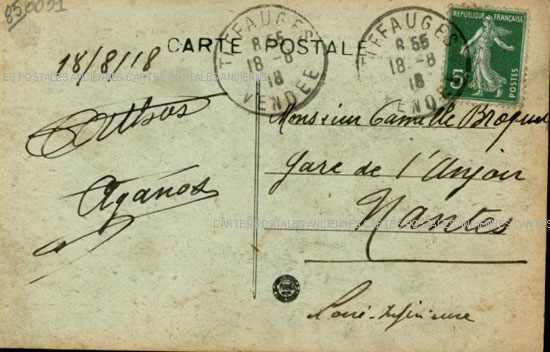 850091
CARTE POSTALE
18/8/18
TIFFAUGES
8 55
18-8
18
VENDÉE
TIFFAUGES
8 55
18-8
18
VENDÉE
REPUBLIQUE FRANÇAISE
5c
POSTES
Athos
Aganos
Monsieur Camille
Gare de l'Anjou
Nantes
Loire-Inférieure
CARTES POSTALES ANCIENNES CARTES POSTALES ANCIENNES CARTES POSTALES ANCIENNES
CARTES POSTALES ANCIENNES CARTES POSTALES